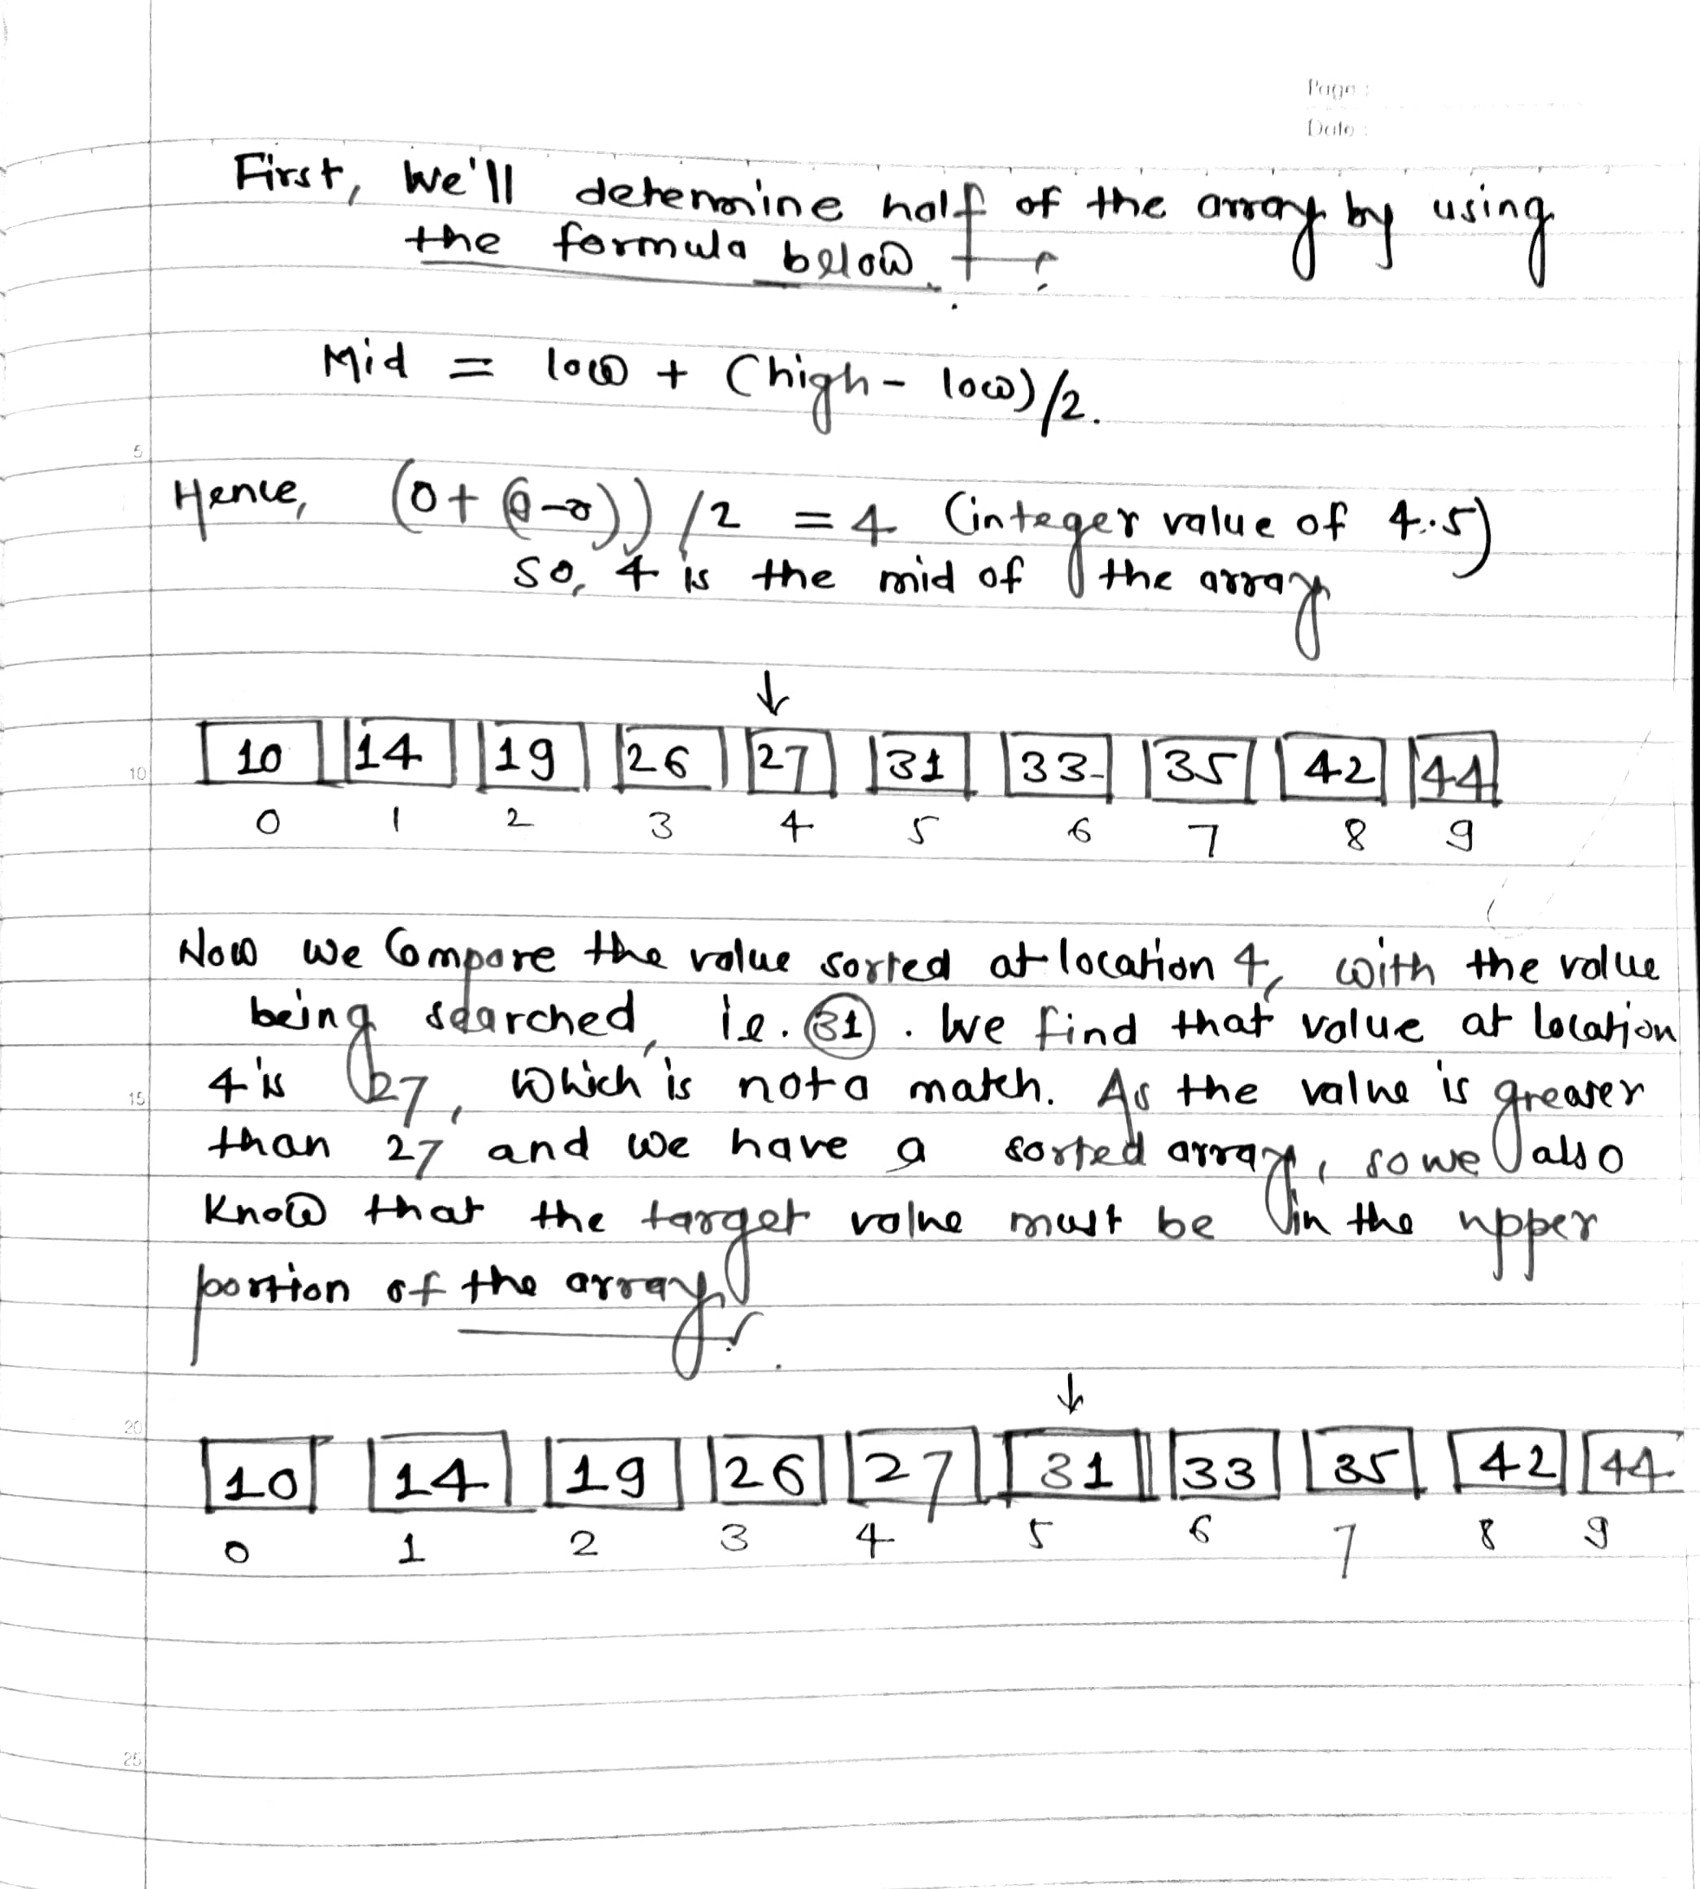 Page :
Date :
First, We'll determine half of the array by using
the formula below.
Mid = low + (high - low)/2.
5
Hence, (0+ (9-0))/2 = 4 (integer value of 4.5)
So, 4 is the mid of the array
10 14 19 26 27 31 33 35 42 44
10
0 1 2 3 4 5 6 7 8 9
Now we Compare the value sorted at location 4, with the value
being searched, ie. 31. We find that value at location
15
4 is 27, which is not a match. As the value is greater
than 27 and we have a sorted array, so we also
Know that the target value must be in the upper
portion of the array.
20
10 14 19 26 27 31 33 35 42 44
0 1 2 3 4 5 6 7 8 9
25